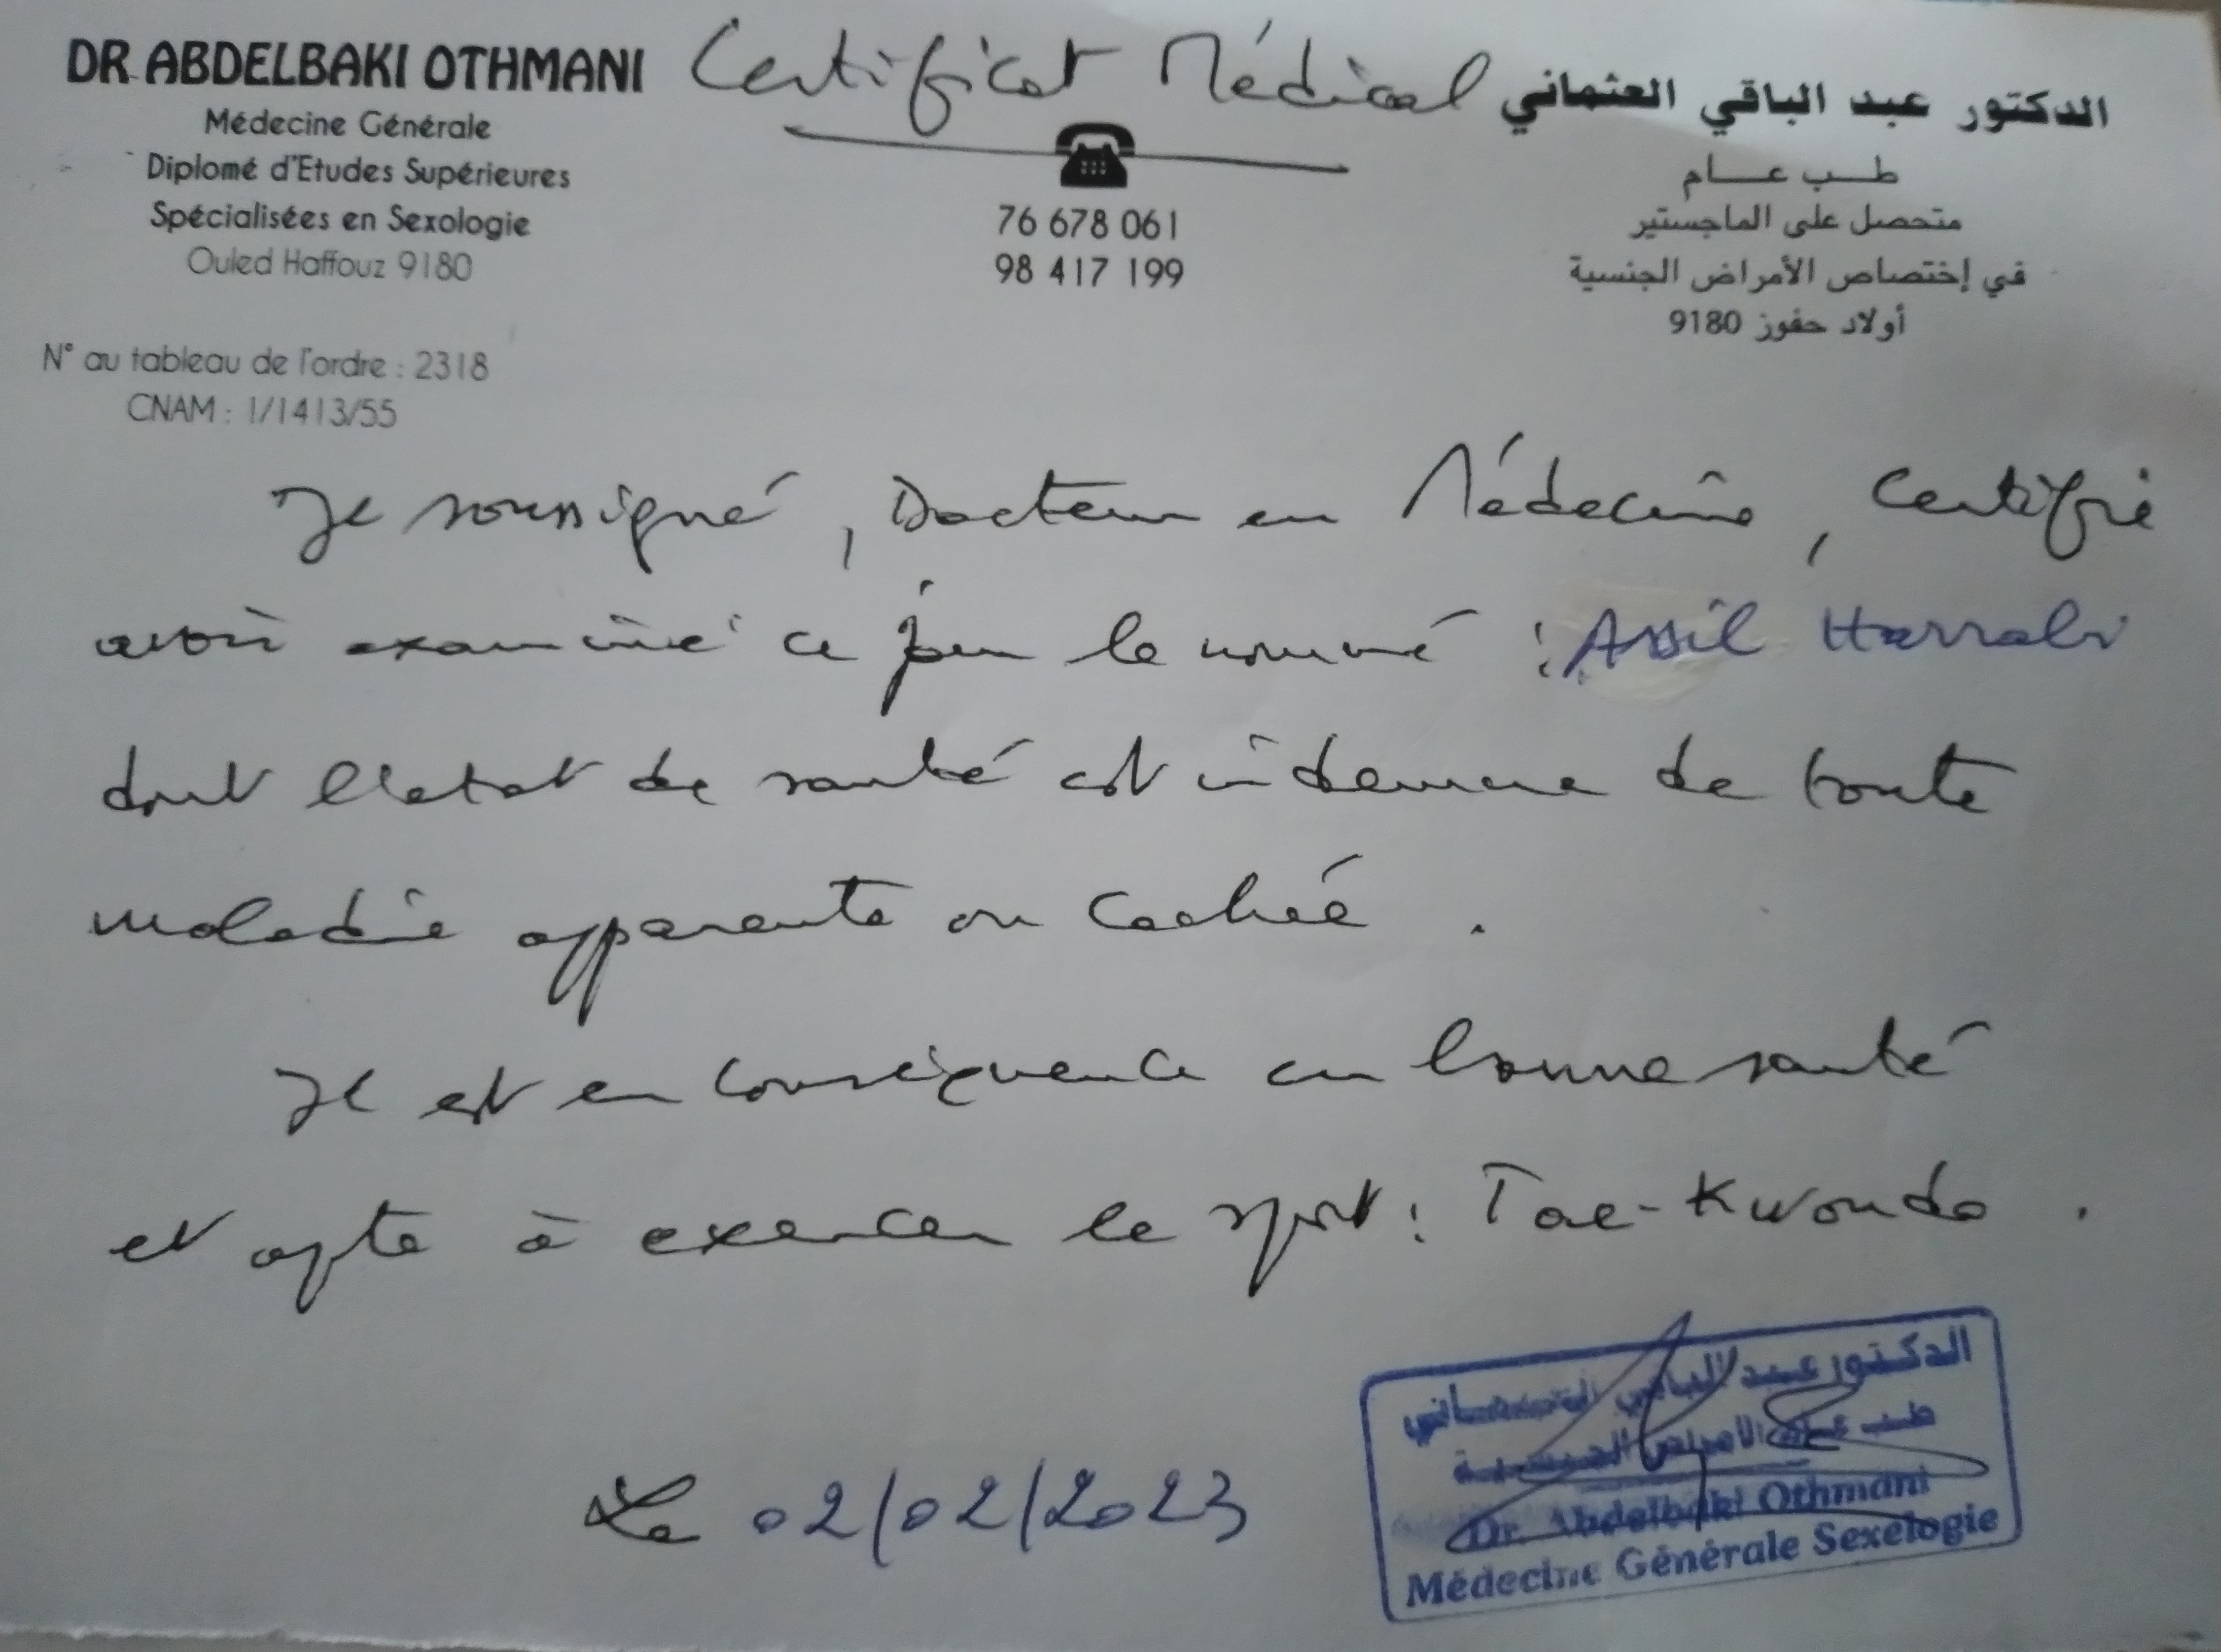 DR ABDELBAKI OTHMANI
Médecine Générale
Diplomé d'Etudes Supérieures
Spécialisées en Sexologie
Ouled Haffouz 9180
N° au tableau de l'ordre : 2318
CNAM : 1/1413/55
Certificat Médical
76 678 061
98 417 199
الدكتور عبد الباقي العثماني
طب عام
متحصل على الماجستير
في إختصاص الأمراض الجنسية
أولاد حفوز 9180
Je soussigné, Docteur en Médecine, Certifie
avoir examiné ce jour le nommé : Assil Harrabi
dont l'etat de santé est indemne de toute
maladie apparente ou cachée.
Il est en conséquence en bonne santé
et apte à exercer le sport : Tae-Kwondo.
Le 02/02/2023
الدكتور عبد الباقي العثماني
طب عام الأمراض الجنسية
Dr. Abdelbaki Othmani
Médecine Générale Sexelogie